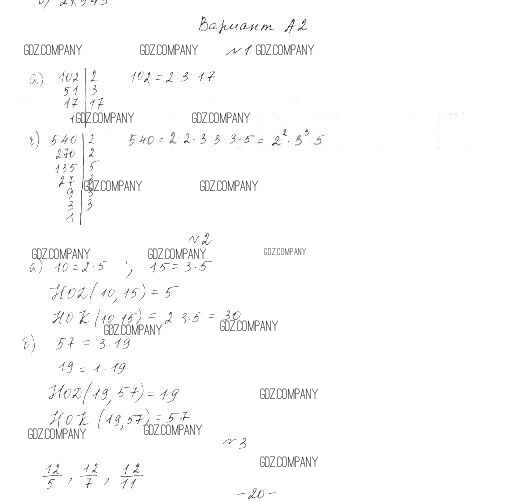 Вариант А2
GDZ.COMPANY GDZ.COMPANY №1 GDZ.COMPANY
а) 102 | 2 102 = 2 3 17
51 | 3
17 | 17
1 GDZ.COMPANY GDZ.COMPANY
б) 540 | 2 540 = 2 2·3 3 3·5 = 2²·3³ 5
270 | 2
135 | 5
27 | 3 GDZ.COMPANY GDZ.COMPANY
9 | 3
3 | 3
1
№2
GDZ.COMPANY GDZ.COMPANY GDZ.COMPANY
а) 10 = 2·5 ; 15 = 3·5
НОД(10,15) = 5
НОК(10,15) = 2 3·5 = 30
GDZ.COMPANY GDZ.COMPANY
б) 57 = 3·19
19 = 1·19
НОД(19,57) = 19
GDZ.COMPANY
НОК (19,57) = 57
GDZ.COMPANY GDZ.COMPANY
№3
GDZ.COMPANY
12/5 , 12/7 , 12/11
-20-